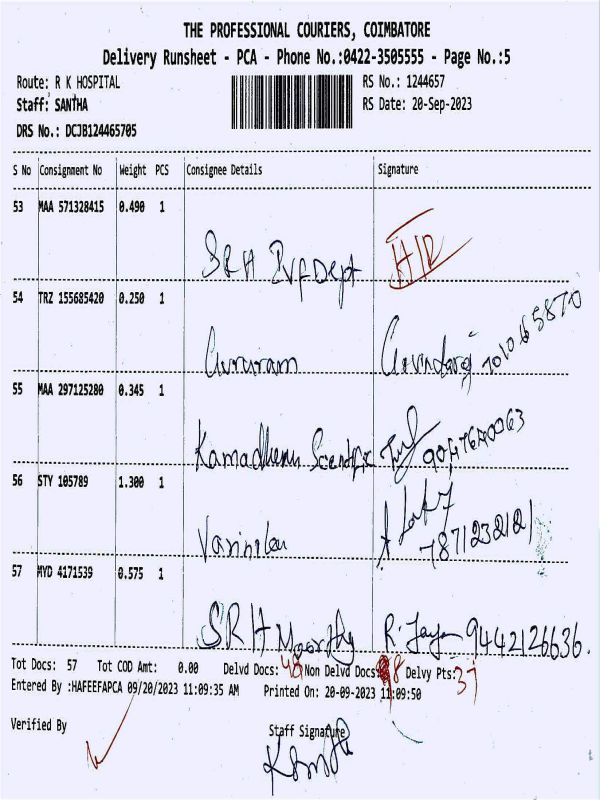 THE PROFESSIONAL COURIERS, COIMBATORE
Delivery Runsheet - PCA - Phone No.:0422-3505555 - Page No.:5
Route: R K HOSPITAL RS No.: 1244657
Staff: SANTHA RS Date: 20-Sep-2023
DRS No.: DCJB124465705
S No Consignment No Weight PCS Consignee Details Signature
53 MAA 571328415 0.490 1
SRH IVF Dept
54 TRZ 155685420 0.250 1
Gururam Govindaraj
55 MAA 297125280 0.345 1
Kamadhenu Scentific
56 STY 105789 1.300 1
7871232121
57 HYD 4171539 0.575 1
SRH Moorthy R. 9442126636.
Tot Docs: 57 Tot COD Amt: 0.00 Delvd Docs: 49 Non Delvd Docs: 8 Delvy Pts: 37
Entered By :HAFEEFAPCA 09/20/2023 11:09:35 AM Printed On: 20-09-2023 11:09:50
Verified By Staff Signature